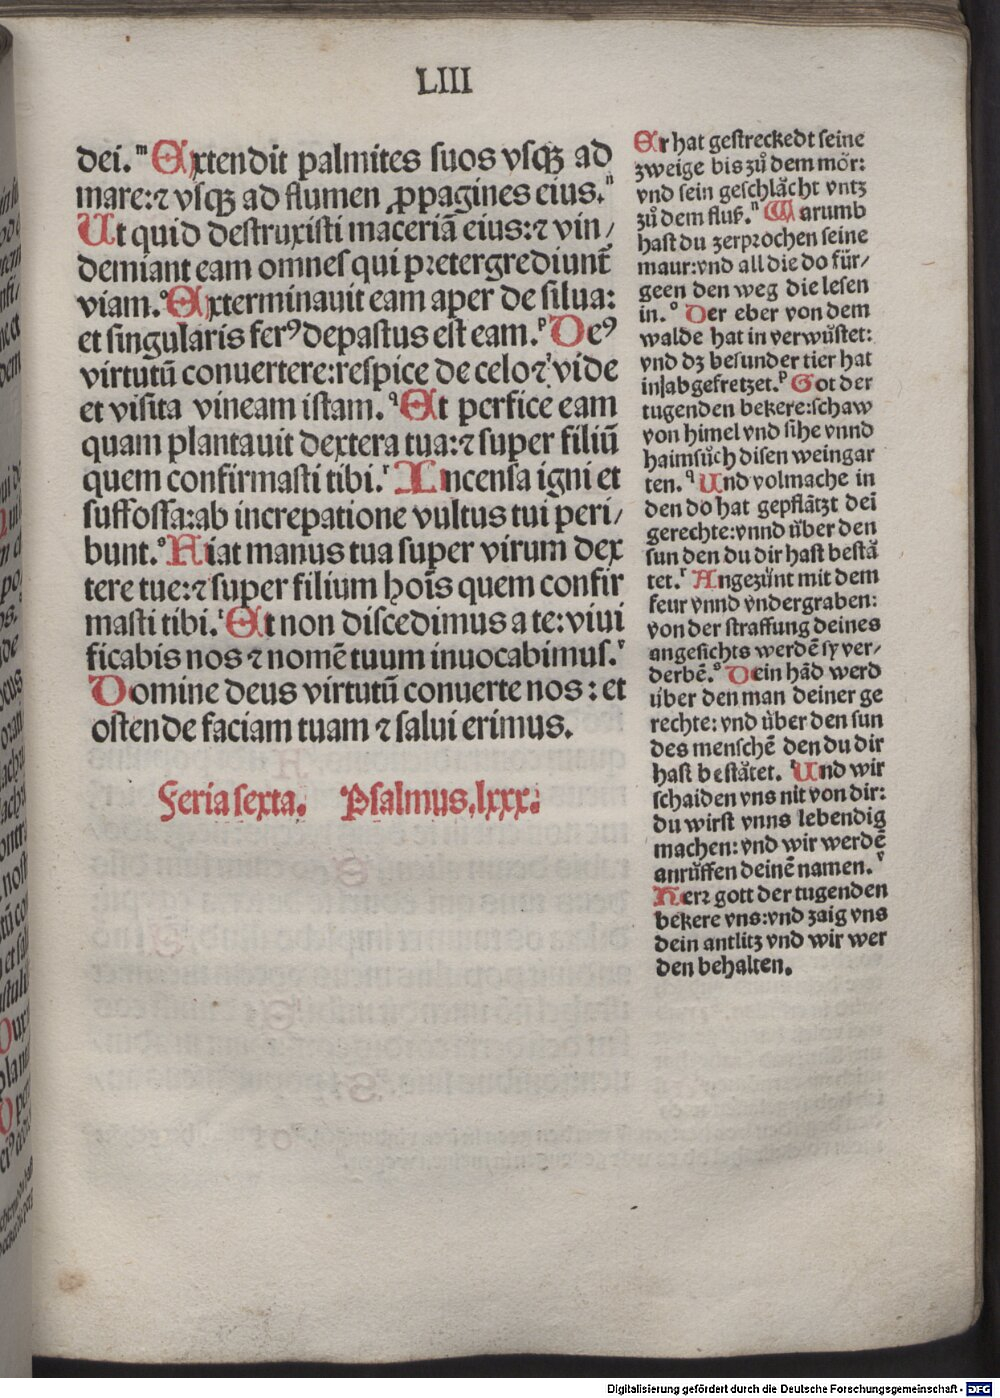 LIII
dei.ᵐ Extendit palmites suos vsqꝫ ad
mare:⁊ vsqꝫ ad flumen ꝓpagines eius.ⁿ
Ut quid destruxisti maceriā eius:⁊ vin/
demiant eam omnes qui pretergrediunt̄
viam.ᵒ Exterminauit eam aper de silua:
et singularis ferꝰ depastus est eam.ᵖ Deꝰ
virtutū conuertere:respice de celo⁊ vide
et visita vineam istam.ᑫ Et perfice eam
quam plantauit dextera tua:⁊ super filiū
quem confirmasti tibi.ʳ Incensa igni et
suffossa:ab increpatione vultus tui peri/
bunt.ˢ Fiat manus tua super virum dex
tere tue:⁊ super filium hoīs quem confir
masti tibi.ᵗ Et non discedimus a te:viui
ficabis nos ⁊ nomē tuum inuocabimus.ᵛ
Domine deus virtutū conuerte nos: et
ostende faciam tuam ⁊ salui erimus.
Feria sexta. Psalmus.lxxx.
Er hat gestreckedt seine
zweige bis zů dem mör:
vnd sein geschlächt vntz
zů dem fluß.ⁿ Warumb
hast du zerprochen seine
maur:vnd all die do für/
geen den weg die lesen
in.ᵒ Der eber von dem
walde hat in verwůstet:
vnd dz besunder tier hat
in abgefretzet.ᵖ Got der
tugenden bekere:schaw
von himel vnd sihe vnnd
haimsůch disen weingar
ten.ᑫ Und volmache in
den do hat gepflātzt deī
gerechte:vnnd über den
sun den du dir hast bestä
tet.ʳ Angezünt mit dem
feur vnnd vndergraben:
von der straffung deines
angesichts werdē sy ver/
derbē.ˢ Dein hād werd
über den man deiner ge
rechte: vnd über den sun
des menschē den du dir
hast bestätet.ᵗ Und wir
schaiden vns nit von dir:
du wirst vnns lebendig
machen: vnd wir werdē
anrůffen deinē namen.ᵛ
Herr gott der tugenden
bekere vns:vnd zaig vns
dein antlitz vnd wir wer
den behalten.
Digitalisierung gefördert durch die Deutsche Forschungsgemeinschaft - DFG